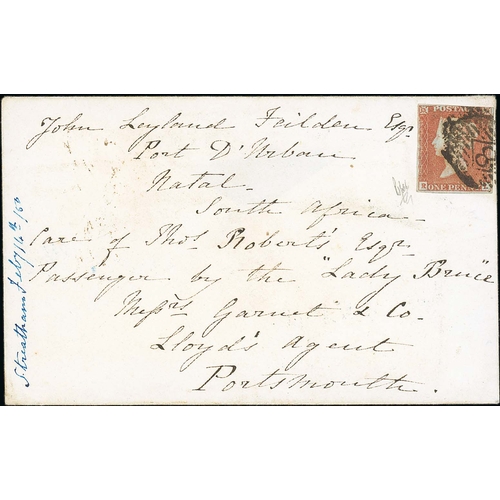 John Leyland Feilden Esqr
Port D'Urban
Natal.
South Africa.
Care of Thos. Roberts Esqr
Passenger by the "Lady Bruce"
Messrs Garnet & Co.
Lloyd's Agent
Portsmouth.
Streatham Feby 16th/50
POSTAGE
ONE PENNY